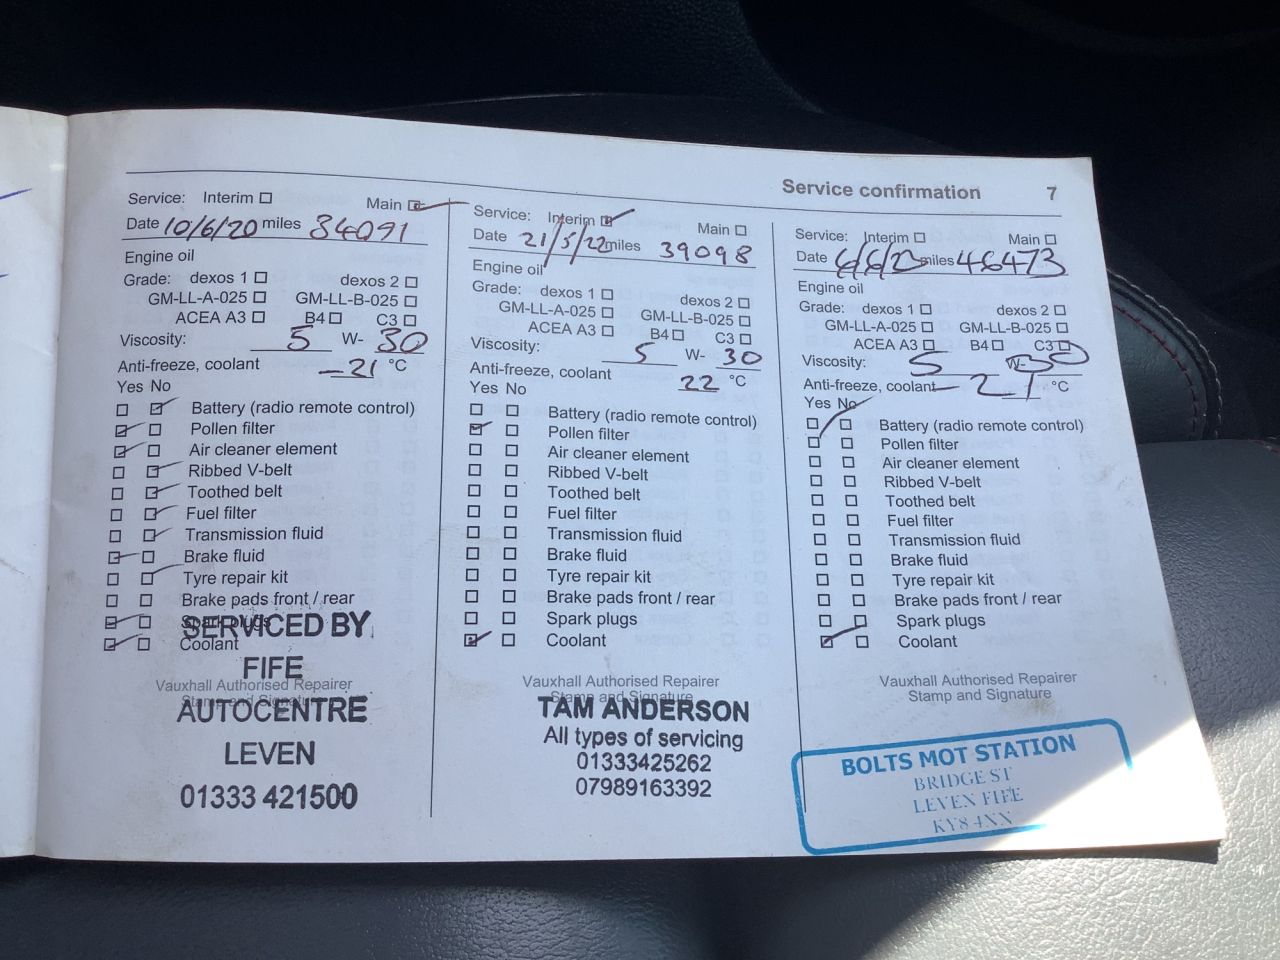 Service confirmation 7
Service: Interim ☐ Main ☑
Date 10/6/20 miles 34091
Engine oil
Grade: dexos 1 ☐ dexos 2 ☐
GM-LL-A-025 ☐ GM-LL-B-025 ☐
ACEA A3 ☐ B4 ☐ C3 ☐
Viscosity: 5 W- 30
Anti-freeze, coolant -21 °C
Yes No
☐ ☑ Battery (radio remote control)
☑ ☐ Pollen filter
☑ ☐ Air cleaner element
☐ ☑ Ribbed V-belt
☐ ☑ Toothed belt
☐ ☑ Fuel filter
☐ ☑ Transmission fluid
☑ ☐ Brake fluid
☐ ☑ Tyre repair kit
☐ ☐ Brake pads front / rear
☑ ☐ Spark plugs
☑ ☐ Coolant
Vauxhall Authorised Repairer
Stamp and Signature
SERVICED BY
FIFE
AUTOCENTRE
LEVEN
01333 421500
Service: Interim ☑ Main ☐
Date 21/5/22 miles 39098
Engine oil
Grade: dexos 1 ☐ dexos 2 ☐
GM-LL-A-025 ☐ GM-LL-B-025 ☐
ACEA A3 ☐ B4 ☐ C3 ☐
Viscosity: 5 W- 30
Anti-freeze, coolant 22 °C
Yes No
☐ ☐ Battery (radio remote control)
☑ ☐ Pollen filter
☐ ☐ Air cleaner element
☐ ☐ Ribbed V-belt
☐ ☐ Toothed belt
☐ ☐ Fuel filter
☐ ☐ Transmission fluid
☐ ☐ Brake fluid
☐ ☐ Tyre repair kit
☐ ☐ Brake pads front / rear
☐ ☐ Spark plugs
☑ ☐ Coolant
Vauxhall Authorised Repairer
Stamp and Signature
TAM ANDERSON
All types of servicing
01333425262
07989163392
Service: Interim ☐ Main ☐
Date 6/6/23 miles 46473
Engine oil
Grade: dexos 1 ☐ dexos 2 ☐
GM-LL-A-025 ☐ GM-LL-B-025 ☐
ACEA A3 ☐ B4 ☐ C3 ☐
Viscosity: 5 W- 30
Anti-freeze, coolant -21 °C
Yes No
☐ ☐ Battery (radio remote control)
☑ ☐ Pollen filter
☐ ☐ Air cleaner element
☐ ☐ Ribbed V-belt
☐ ☐ Toothed belt
☐ ☐ Fuel filter
☐ ☐ Transmission fluid
☐ ☐ Brake fluid
☐ ☐ Tyre repair kit
☐ ☐ Brake pads front / rear
☐ ☐ Spark plugs
☑ ☐ Coolant
Vauxhall Authorised Repairer
Stamp and Signature
BOLTS MOT STATION
BRIDGE ST
LEVEN FIFE
KY8 4NN